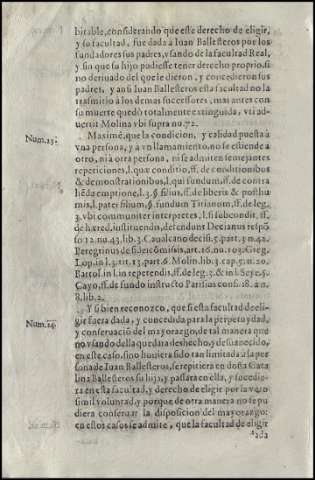 bitable, considerando que este derecho de eligir,
y su facultad, fue dada a Iuan Ballesteros por los
fundadores sus padres, vsando de la facultad Real,
y sin que su hijo pudiesse tener derecho proprio, si
no deriuado del que le dieron, y concedieron sus
padres, y ansi Iuan Ballesteros esta facultad no la
trasmitio a los demas successores, mas antes con
su muerte quedò totalmente extinguida, vti ad-
uertit Molina vbi supra no. 72.
Num. 23.
Maximè, que la condicion, y calidad puesta à
vna persona, y a vn llamamiento, no se estiende a
otro, ni à otra persona, ni se admiten semejantes
repeticiones, l. quæ conditio, ff. de conditionibus
& demonstrationibus, l. qui fundum, ff. de contra
hẽda emptione, l. 3. §. filius, ff. de liberis & posthu
mis, l. pater filium, §. fundum Titianum, ff. de leg.
3. vbi communiter interpretes, l. si subcondit. ff.
de hæred. instituendis, defendunt Decianus respõ
so 12. nu. 43. lib. 3. Caualcano decis. 5. part. 3. n. 42.
Peregrinus de fideicõmissis, art. 16. no. 103. Greg.
Lop. in l. 3. tit. 13. part. 6. Molin. lib. 3. cap. 5. n. 20.
Bartol. in l. in repetendis, ff. de leg. 3. & in l. Seye, §.
Cayo, ff. de fundo instructo Parisius cons. 18. a n.
8. lib. 2.
Num. 24.
Y si bien reconozco, que si esta facultad de eli-
gir fuera dada, y concedida para la perpetuydad,
y conseruaciõ del mayorazgo, de tal manera que
no vsando della quedàra deshecho, y desuanecido,
en este caso, sino huuiera sido tan limitada à la per
sona de Iuan Ballesteros, se repitiera en doña Cata
lina Ballesteros su hija, y passara en ella, y sucedie
ra en esta facultad, y derecho de eligir por la vero
simil voluntad, y porque de otra manera no se pu
diera conseruar la disposicion del mayorazgo:
en estos casos se admite, que la facultad de eligir
dada